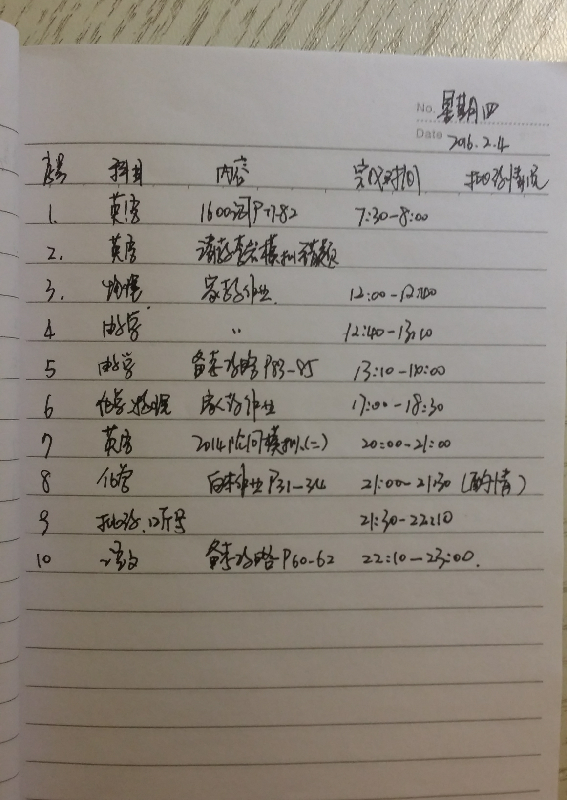 No. 星期四
Date 2016.2.4
序号 科目 内容 完成时间 批改情况
1. 英语 1600词P71-82 7:30-8:00
2. 英语 模拟错题
3. 物理 家教作业 12:00-12:40
4 数学 〃 12:40-13:10
5 数学 备考攻略 P83-85 13:10-14:00
6 化学、物理 家教作业 17:00-18:30
7 英语 2014 模拟(二) 20:00-21:00
8 化学 白本作业P31-34 21:00-21:30 (酌情)
9 批改、听写 21:30-22:10
10 语文 备考攻略P60-62 22:10-23:00.